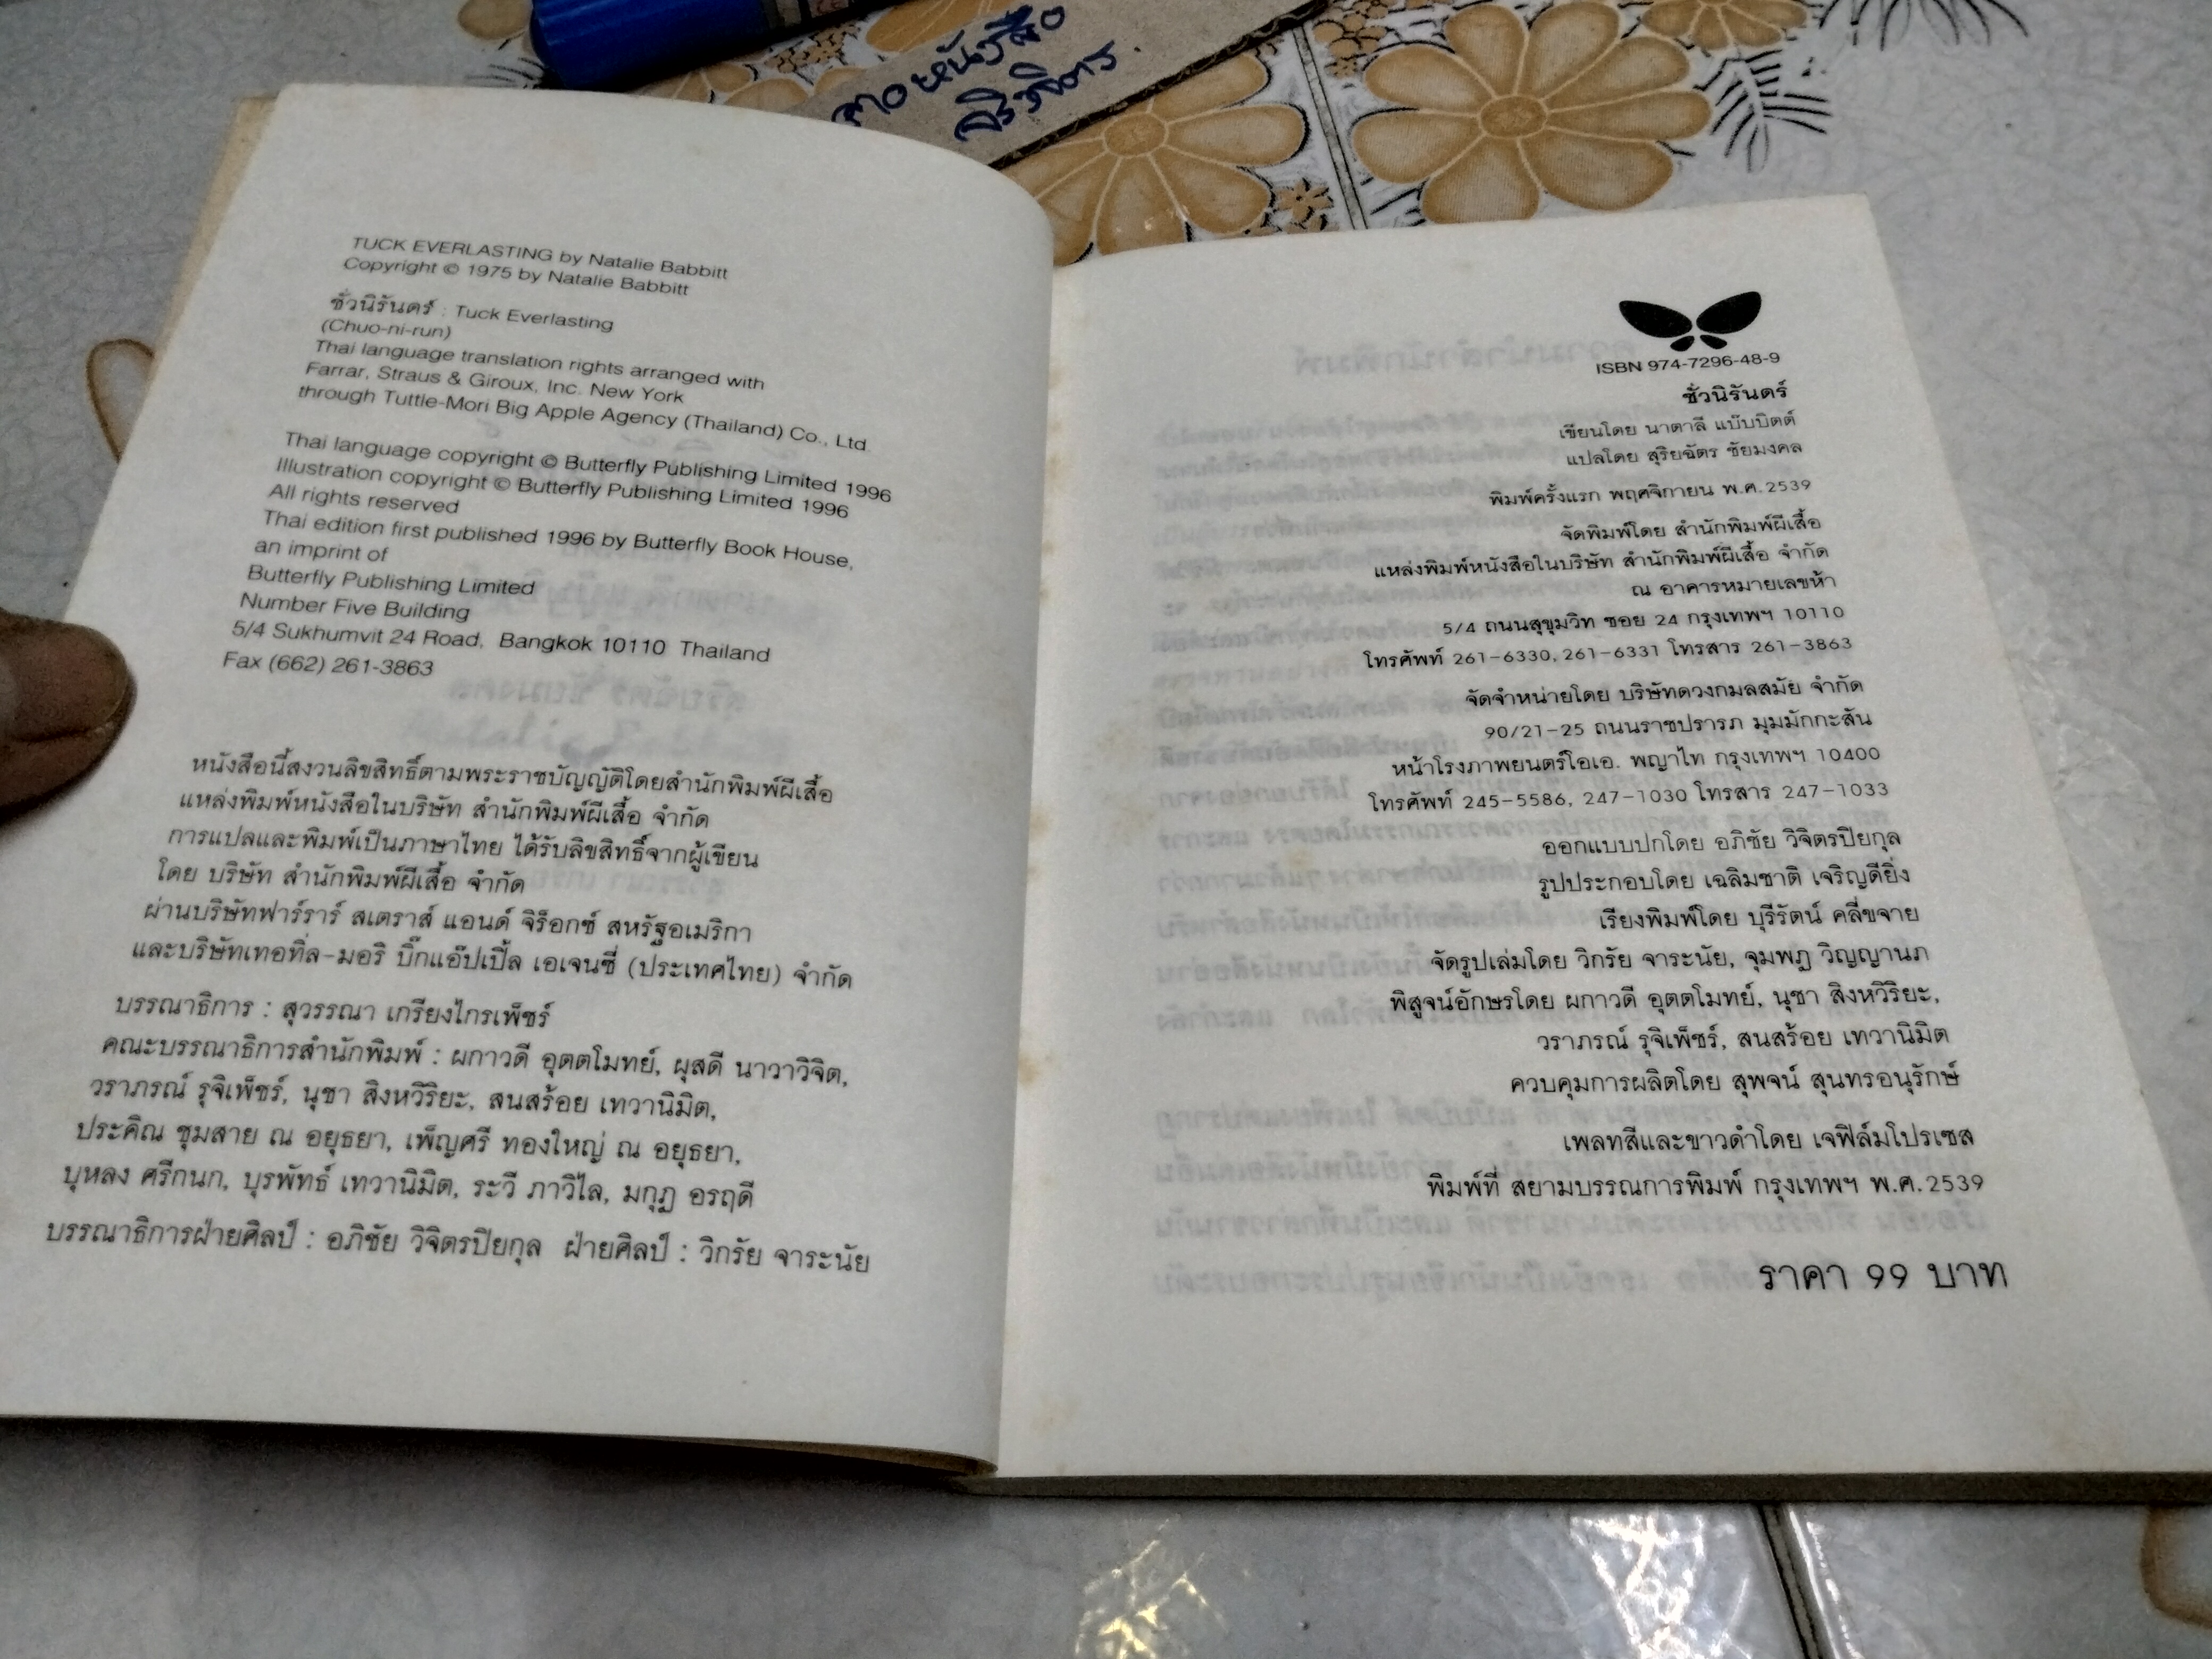 จองหนังสือ
วิจิตร
TUCK EVERLASTING by Natalie Babbitt
Copyright © 1975 by Natalie Babbitt
ชั่วนิรันดร์ : Tuck Everlasting
(Chuo-ni-run)
Thai language translation rights arranged with
Farrar, Straus & Giroux, Inc. New York
through Tuttle-Mori Big Apple Agency (Thailand) Co., Ltd.
Thai language copyright © Butterfly Publishing Limited 1996
Illustration copyright © Butterfly Publishing Limited 1996
All rights reserved
Thai edition first published 1996 by Butterfly Book House,
an imprint of
Butterfly Publishing Limited
Number Five Building
5/4 Sukhumvit 24 Road, Bangkok 10110 Thailand
Fax (662) 261-3863
หนังสือนี้สงวนลิขสิทธิ์ตามพระราชบัญญัติโดยสำนักพิมพ์ผีเสื้อ
แหล่งพิมพ์หนังสือในบริษัท สำนักพิมพ์ผีเสื้อ จำกัด
การแปลและพิมพ์เป็นภาษาไทย ได้รับลิขสิทธิ์จากผู้เขียน
โดย บริษัท สำนักพิมพ์ผีเสื้อ จำกัด
ผ่านบริษัทฟาร์ราร์ สเตราส์ แอนด์ จิร็อกซ์ สหรัฐอเมริกา
และบริษัทเทอทิ่ล-มอริ บิ๊กแอ๊ปเปิ้ล เอเจนซี่ (ประเทศไทย) จำกัด
บรรณาธิการ : สุวรรณา เกรียงไกรเพ็ชร์
คณะบรรณาธิการสำนักพิมพ์ : ผกาวดี อุตตโมทย์, ผุสดี นาวาวิจิต,
วราภรณ์ รุจิเพ็ชร์, นุชา สิงหวิริยะ, สนสร้อย เทวานิมิต,
ประคิณ ชุมสาย ณ อยุธยา, เพ็ญศรี ทองใหญ่ ณ อยุธยา,
บุหลง ศรีกนก, บุรพัทธ์ เทวานิมิต, ระวี ภาวิไล, มกุฏ อรฤดี
บรรณาธิการฝ่ายศิลป์ : อภิชัย วิจิตรปิยกุล ฝ่ายศิลป์ : วิกรัย จาระนัย
ISBN 974-7296-48-9
ชั่วนิรันดร์
เขียนโดย นาตาลี แบ๊บบิตต์
แปลโดย สุริยฉัตร ชัยมงคล
พิมพ์ครั้งแรก พฤศจิกายน พ.ศ.2539
จัดพิมพ์โดย สำนักพิมพ์ผีเสื้อ
แหล่งพิมพ์หนังสือในบริษัท สำนักพิมพ์ผีเสื้อ จำกัด
ณ อาคารหมายเลขห้า
5/4 ถนนสุขุมวิท ซอย 24 กรุงเทพฯ 10110
โทรศัพท์ 261-6330, 261-6331 โทรสาร 261-3863
จัดจำหน่ายโดย บริษัทดวงกมลสมัย จำกัด
90/21-25 ถนนราชปรารภ มุมมักกะสัน
หน้าโรงภาพยนตร์โอเอ. พญาไท กรุงเทพฯ 10400
โทรศัพท์ 245-5586, 247-1030 โทรสาร 247-1033
ออกแบบปกโดย อภิชัย วิจิตรปิยกุล
รูปประกอบโดย เฉลิมชาติ เจริญดียิ่ง
เรียงพิมพ์โดย บุรีรัตน์ คลี่ขจาย
จัดรูปเล่มโดย วิกรัย จาระนัย, จุมพฏ วิญญานภ
พิสูจน์อักษรโดย ผกาวดี อุตตโมทย์, นุชา สิงหวิริยะ,
วราภรณ์ รุจิเพ็ชร์, สนสร้อย เทวานิมิต
ควบคุมการผลิตโดย สุพจน์ สุนทรอนุรักษ์
เพลทสีและขาวดำโดย เจฟิล์มโปรเซส
พิมพ์ที่ สยามบรรณการพิมพ์ กรุงเทพฯ พ.ศ.2539
ราคา 99 บาท